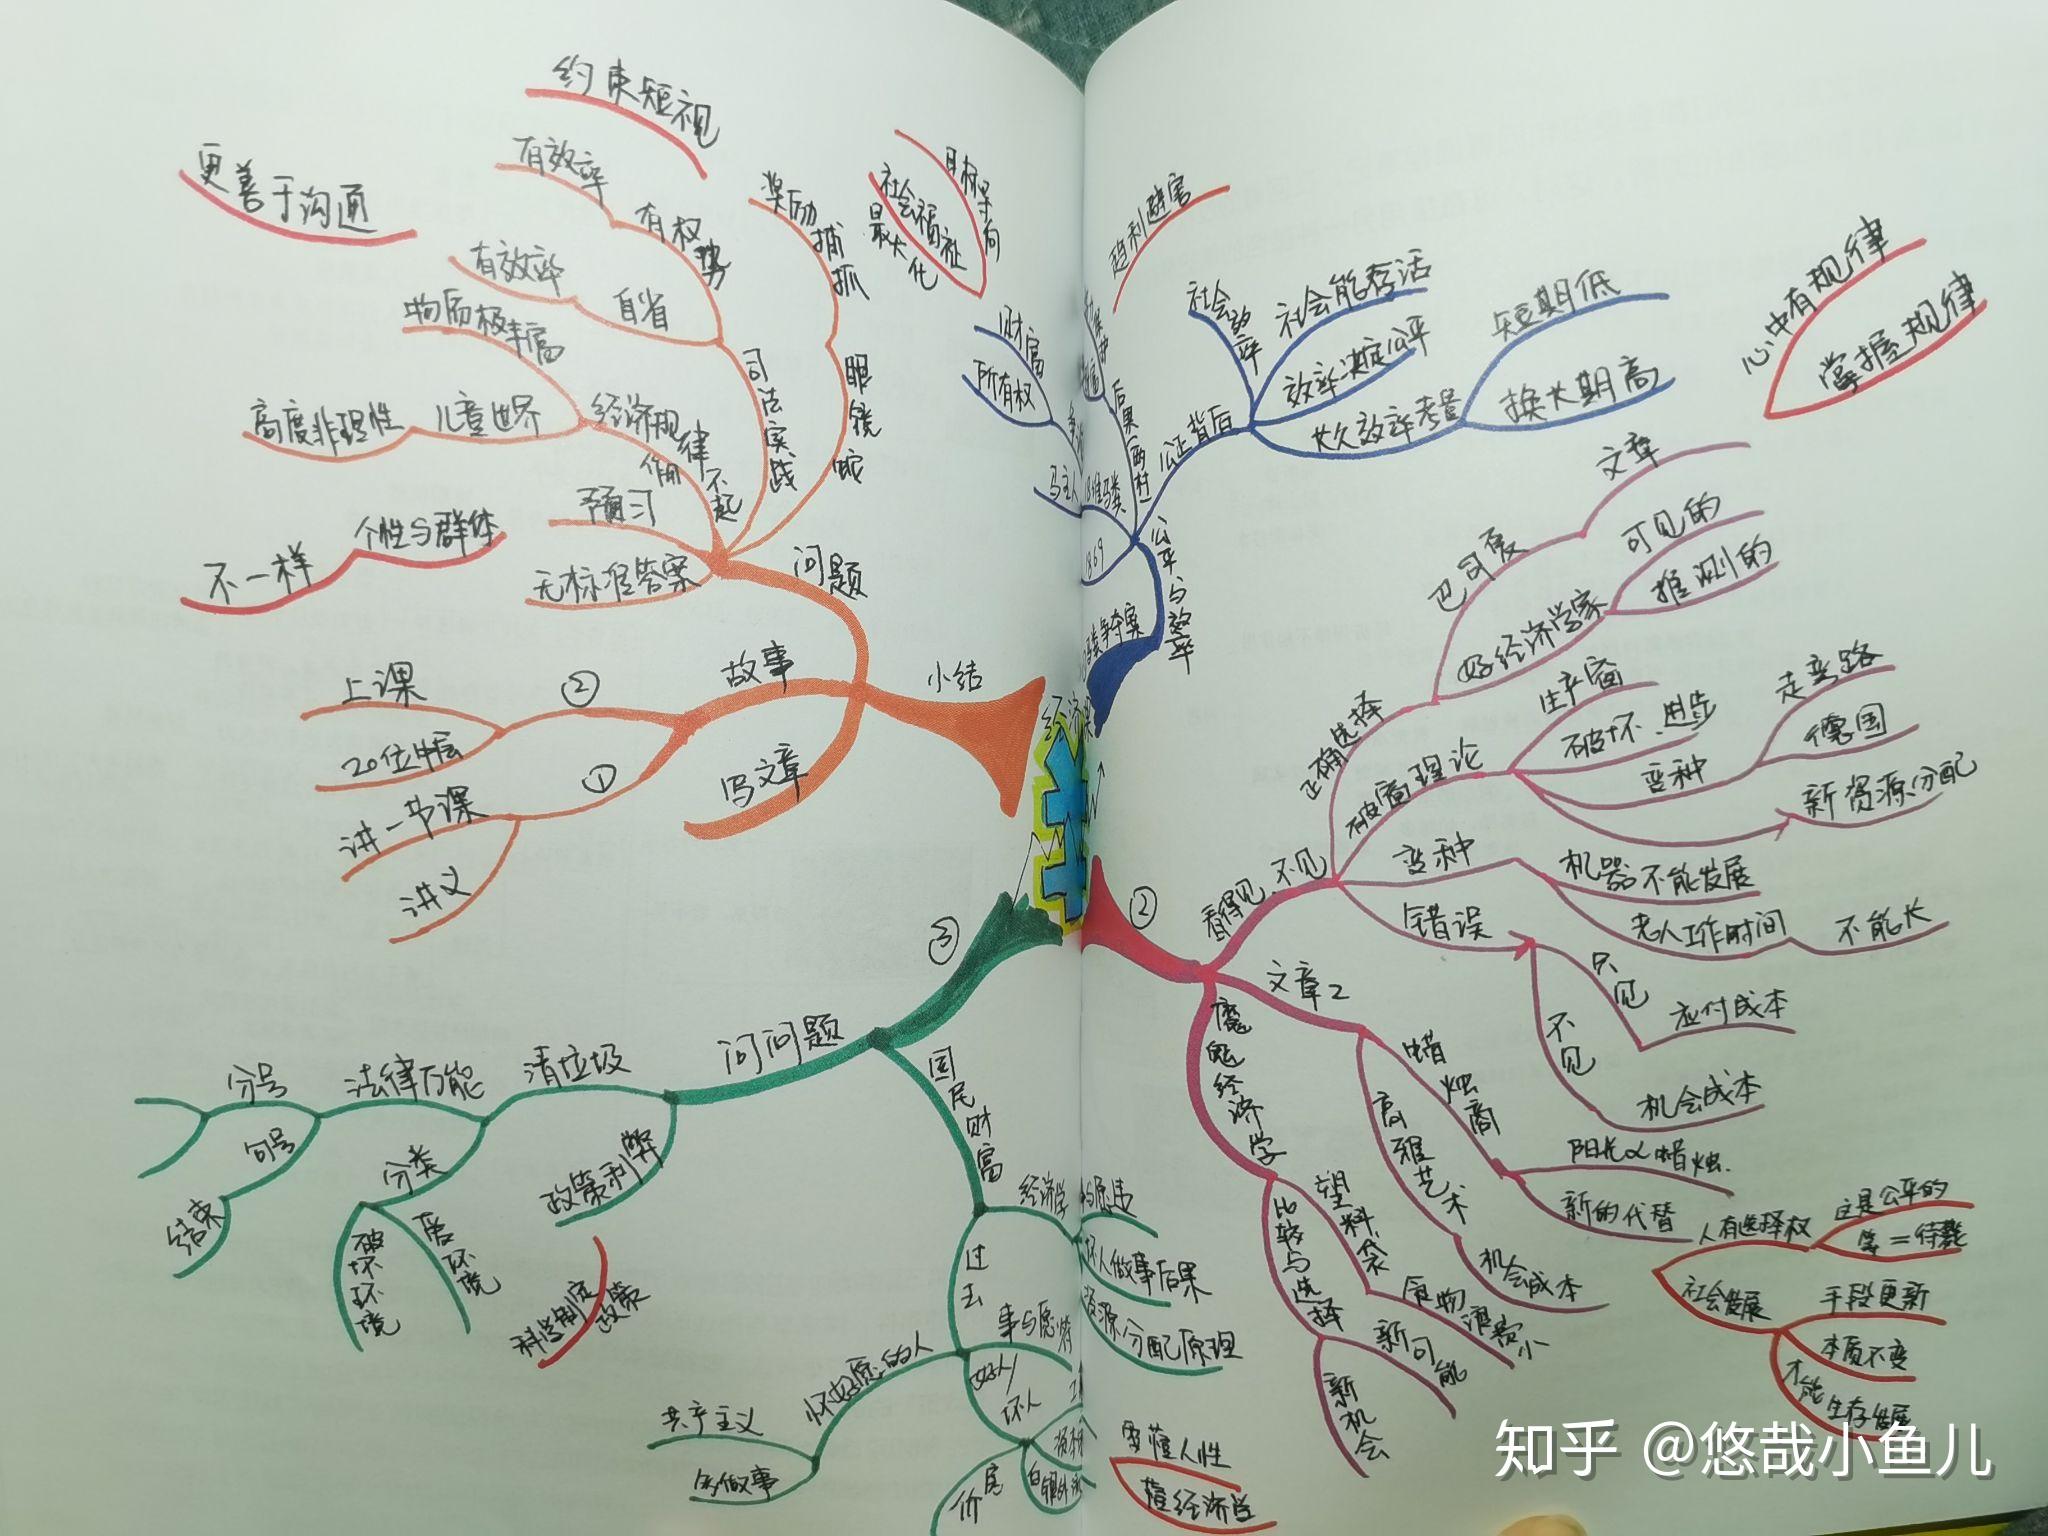 约束短视
有效率
有权势
奖励
捕抓
眼镜蛇
更善于沟通
有效率
自省
司法实践
物质极丰富
高度非理性
儿童世界
经济规律不起作用
预习
无标准答案
问题
不一样
个性与群体
目标导向
社会福祉
最大化
趋利避害
财富
所有权
马主人
1869
后果(两村)
公正背后
公平与效率
社会效率
社会能存活
效率决定公平
长久效率考量
短期低
换长期高
心中有规律
掌握规律
上课
20位中层
②
故事
讲一节课
讲义
①
写文章
小结
②
看得见、不见
正确选择
巴司夏
文章
好经济学家
可见的
推测的
破窗理论
生产窗
破坏、进步
变种
走弯路
德国
新资源分配
变种
机器不能发展
老人工作时间
不能长
错误
只见
应付成本
不见
机会成本
文章2
蜡烛商
阳光 蜡烛
新的代替
高雅艺术
机会成本
魔鬼经济学
塑料袋
食物浪费小
新可能
比较与选择
新机会
人有选择权
这是公平的
社会发展
手段更新
本质不变
才能生存发展
③
问问题
清垃圾
法律万能
分号
句号
结束
分类
破坏环境
政策利弊
科学制定
政策
国民财富
经济学
坏人做事后果
资源分配原理
过去
怀好愿的人
共产主义
好人/
坏人
房价
要懂人性
懂经济学
知乎 @悠哉小鱼儿